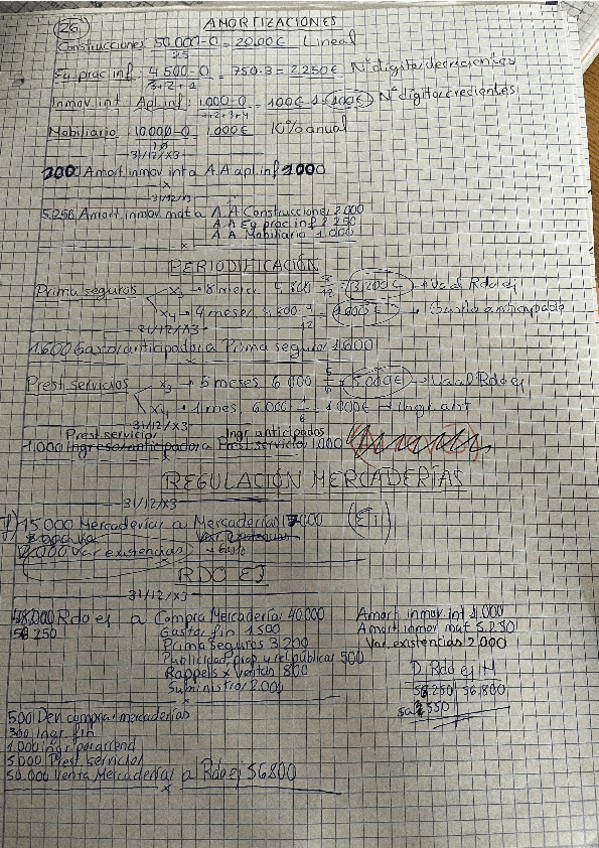 26 AMORTIZACIONES
Construcciones 50.000-0 = 2000€ Lineal
25
Eq proc inf. 4.500-0 = 750·3 = 2.250€ Nº digitos decrecientes
3+2+1
Inmov. int Apl. inf. 1.000-0 100€ Nº digitos crecientes
1+2+3+4
Mobiliario 10.000-0 1.000€ 10% anual
10
31/12/X3
Amort. inmov. int a A.A apl. inf
x
31/12/X3
5.250 Amort inmov. mat a A.A Construcciones 2.000
A.A Eq proc inf 2.250
A.A. Mobiliario 1.000
x
PERIODIFICACIÓN
Prima seguros x3 → 8 meses 4.800 8/12 = 3.200€ → Va al Rdo ej
x4 → 4 meses 4.800 4/12 → Gasto anticipado
31/12/X3
1.600 Gastos anticipados a Prima seguros 1.600
Prest. servicios x3 → 5 meses 6.000 5/6 = 5.000€ → Va al Rdo ej
x4 → 1 mes 6.000 1/6 = 1.000€ → Ingr. ant
31/12/X3
Prest. servicios Ingr anticipados
1.000 Ingresos anticipados a Prest. servicios 1.000
x
REGULACIÓN MERCADERÍAS
31/12/X3
15.000 Mercaderías a Mercaderías
Var existencias
RDO EJ
31/12/X3
Rdo ej a Compra Mercaderías 40.000 Amort inmov. int 1.000
Gastos fin 1.500 Amort inmov mat 5.250
Prima Seguros 3.200 Var. existencias 2.000
Publicidad, prop y rel públicas 500
Rappels x ventas 800
Suministros 2.000
D Rdo ej H
56.250 56.800
550
x
500 Dev. compras mercaderías
300 Ingr. fin
1.000 Ingr. por arrend
5.000 Prest servicios
50.000 Venta Mercaderías a Rdo ej 56800
x